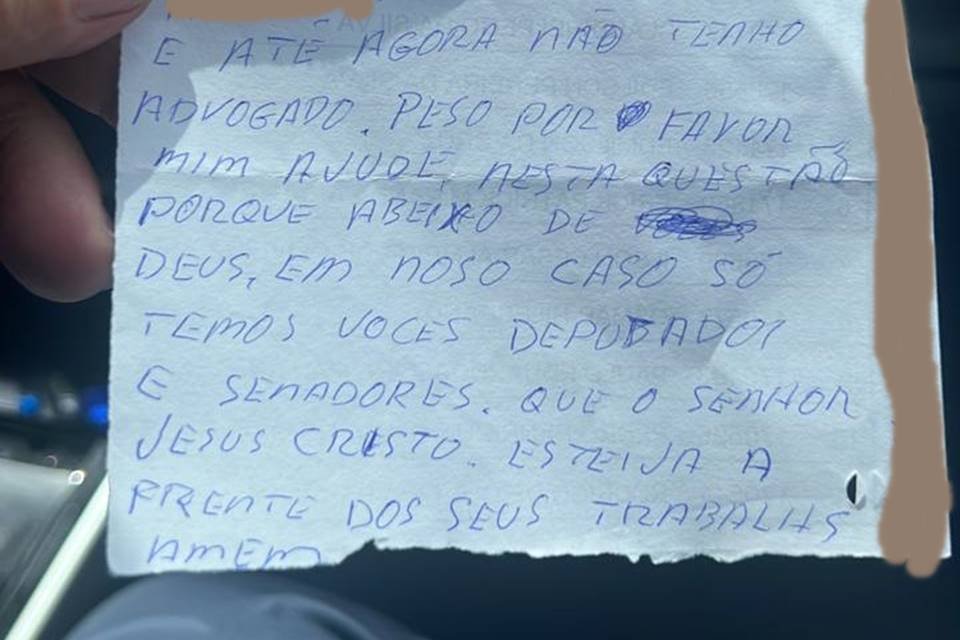 E ATÉ AGORA NÃO TENHO
ADVOGADO. PESO POR FAVOR
MIM AJUDE, NESTA QUESTÃO
PORQUE ABEIXO DE
DEUS, EM NOSO CASO SÓ
TEMOS VOCES DEPUTADOS
E SENADORES. QUE O SENHOR
JESUS CRISTO. ESTEIJA A
FRENTE DOS SEUS TRABALHS
AMEM